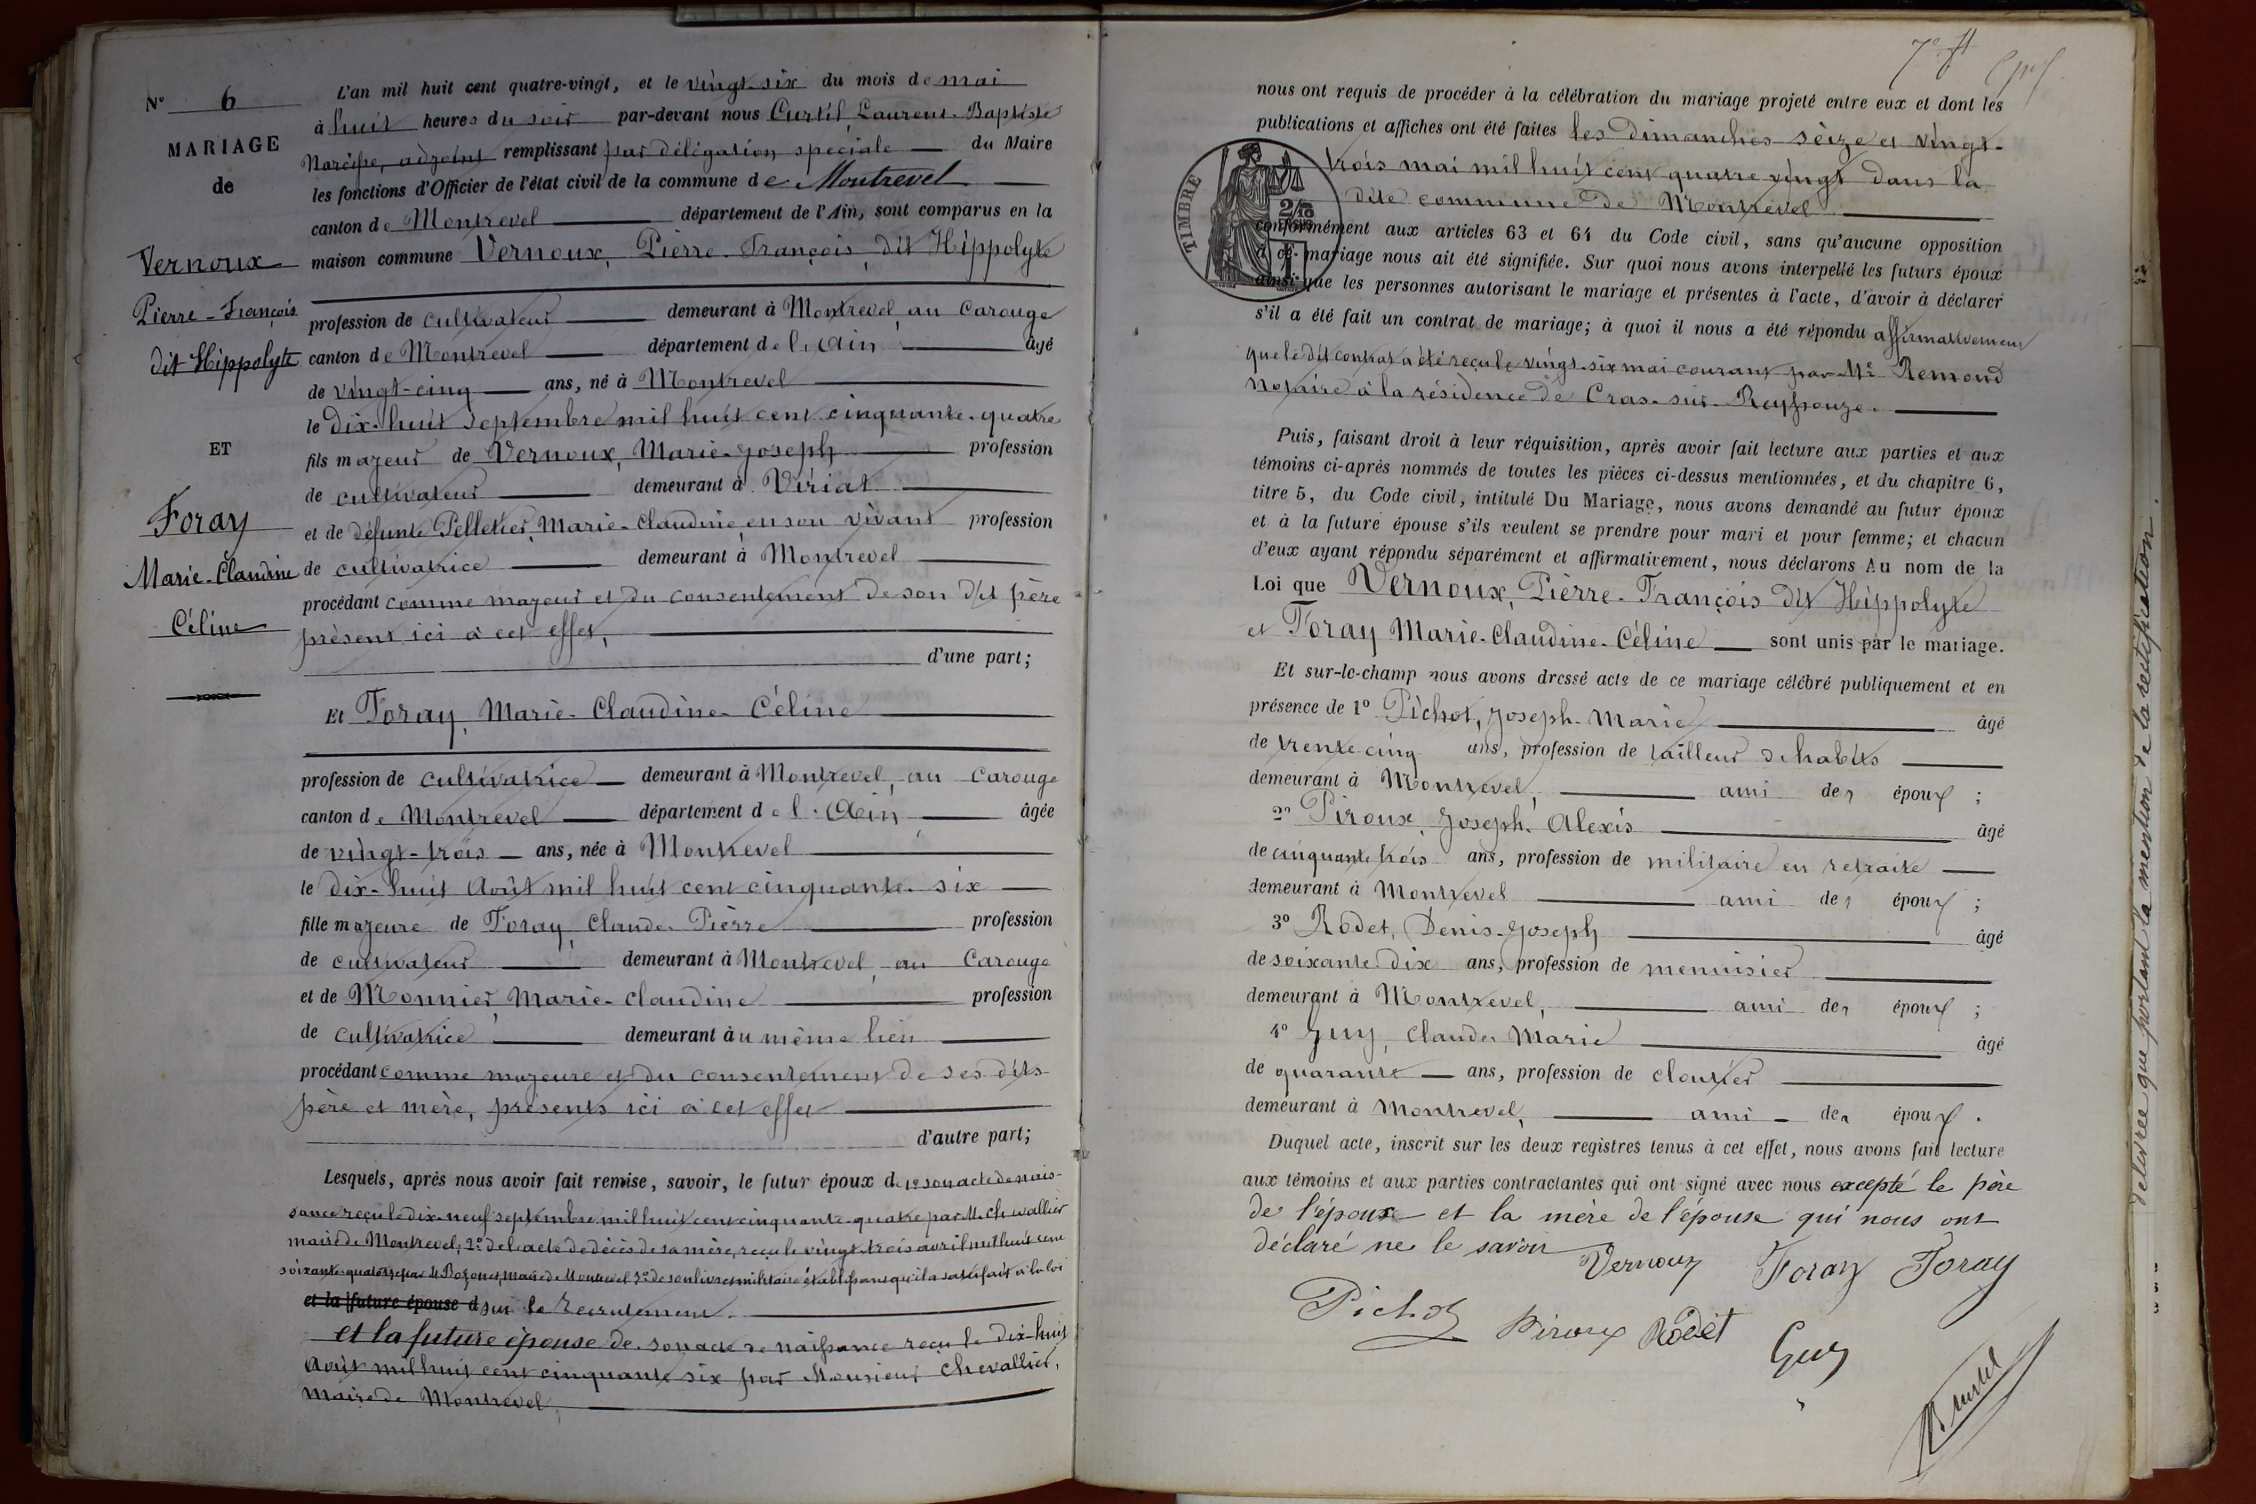 N° 6
MARIAGE
de
Vernoux
Pierre-François
dit Hippolyte
ET
Foray
Marie-Claudine
Céline
L'an mil huit cent quatre-vingt, et le vingt-six du mois de mai
à huit heures du soir par-devant nous Curtil, Laurent-Baptiste
Narcisse, adjoint remplissant par délégation spéciale du Maire
les fonctions d'Officier de l'état civil de la commune de Montrevel
canton de Montrevel département de l'Ain, sont comparus en la
maison commune Vernoux, Pierre-François, dit Hippolyte
profession de cultivateur demeurant à Montrevel, au Carouge
canton de Montrevel département de l'Ain âgé
de vingt-cinq ans, né à Montrevel
le dix-huit septembre mil huit cent cinquante-quatre
fils majeur de Vernoux, Marie-Joseph profession
de cultivateur demeurant à Viriat
et de défunte Pelletier, Marie-Claudine, en son vivant profession
de cultivatrice demeurant à Montrevel
procédant comme majeur et du consentement de son dit père
présent ici à cet effet,
d'une part;
Et Foray, Marie-Claudine-Céline
profession de cultivatrice demeurant à Montrevel, au Carouge
canton de Montrevel département de l'Ain âgée
de vingt-trois ans, née à Montrevel
le dix-huit Août mil huit cent cinquante-six
fille majeure de Foray, Claude-Pierre profession
de cultivateur demeurant à Montrevel, au Carouge
et de Monnier, Marie-Claudine profession
de cultivatrice demeurant au même lieu
procédant comme majeure et du consentement de ses dits
père et mère, présents ici à cet effet
d'autre part;
Lesquels, après nous avoir fait remise, savoir, le futur époux de 1° son acte de nais-
sance reçu le dix-neuf septembre mil huit cent cinquante-quatre par M. Chevallier
maire de Montrevel, 2° de l'acte de décès de sa mère, reçu le vingt-trois avril mil huit cent
soixante-quatorze par M. Bozonet, maire de Montrevel 3° de son livret militaire établissant qu'il a satisfait à la loi
et la future épouse d sur le recrutement.
et la future épouse de son acte de naissance reçu le dix-huit
Août mil huit cent cinquante six par Monsieur Chevallier,
maire de Montrevel,
7e ft
nous ont requis de procéder à la célébration du mariage projeté entre eux et dont les
publications et affiches ont été faites les dimanches seize et vingt-
trois mai mil huit cent quatre vingt dans la
dite commune de Montrevel
TIMBRE
2/10
EN SUS
conformément aux articles 63 et 64 du Code civil, sans qu'aucune opposition
à ce mariage nous ait été signifiée. Sur quoi nous avons interpellé les futurs époux
ainsi que les personnes autorisant le mariage et présentes à l'acte, d'avoir à déclarer
s'il a été fait un contrat de mariage; à quoi il nous a été répondu affirmativement
que le dit contrat a été reçu le vingt-six mai courant par Me Remond
Notaire à la résidence de Cras-sur-Reyssouze.
Puis, faisant droit à leur réquisition, après avoir fait lecture aux parties et aux
témoins ci-après nommés de toutes les pièces ci-dessus mentionnées, et du chapitre 6,
titre 5, du Code civil, intitulé Du Mariage, nous avons demandé au futur époux
et à la future épouse s'ils veulent se prendre pour mari et pour femme; et chacun
d'eux ayant répondu séparément et affirmativement, nous déclarons Au nom de la
Loi que Vernoux, Pierre-François dit Hippolyte
et Foray Marie-Claudine-Céline sont unis par le mariage.
Et sur-le-champ nous avons dressé acte de ce mariage célébré publiquement et en
présence de 1° Pichot, Joseph-Marie âgé
de trente cinq ans, profession de tailleur d'habits
demeurant à Montrevel, ami des époux ;
2° Piroux, Joseph-Alexis âgé
de cinquante trois ans, profession de militaire en retraite
demeurant à Montrevel ami des époux ;
3° Rodet, Denis-Joseph âgé
de soixante dix ans, profession de menuisier
demeurant à Montrevel, ami des époux ;
4° Guy, Claude Marie âgé
de quarante ans, profession de cloutier
demeurant à Montrevel, ami des époux .
Duquel acte, inscrit sur les deux registres tenus à cet effet, nous avons fait lecture
aux témoins et aux parties contractantes qui ont signé avec nous excepté le père
de l'époux et la mère de l'épouse qui nous ont
déclaré ne le savoir
Vernoux Foray Foray
Pichot Piroux Rodet
Guy
délivrée que portant la mention de la rectification.